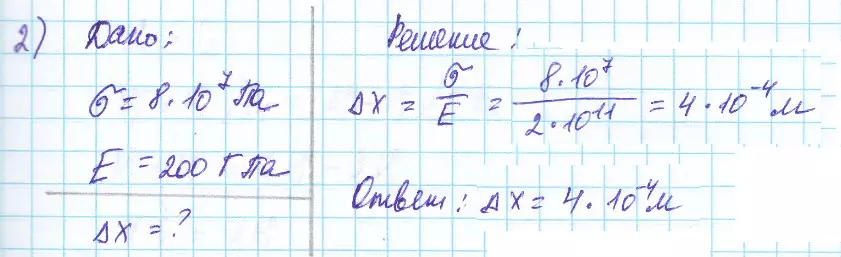 2) Дано:
σ = 8 · 10⁷ Па
E = 200 ГПа
ΔX = ?
Решение:
ΔX = σ/E = 8·10⁷/2·10¹¹ = 4 · 10⁻⁴ м
Ответ: ΔX = 4 · 10⁻⁴ м